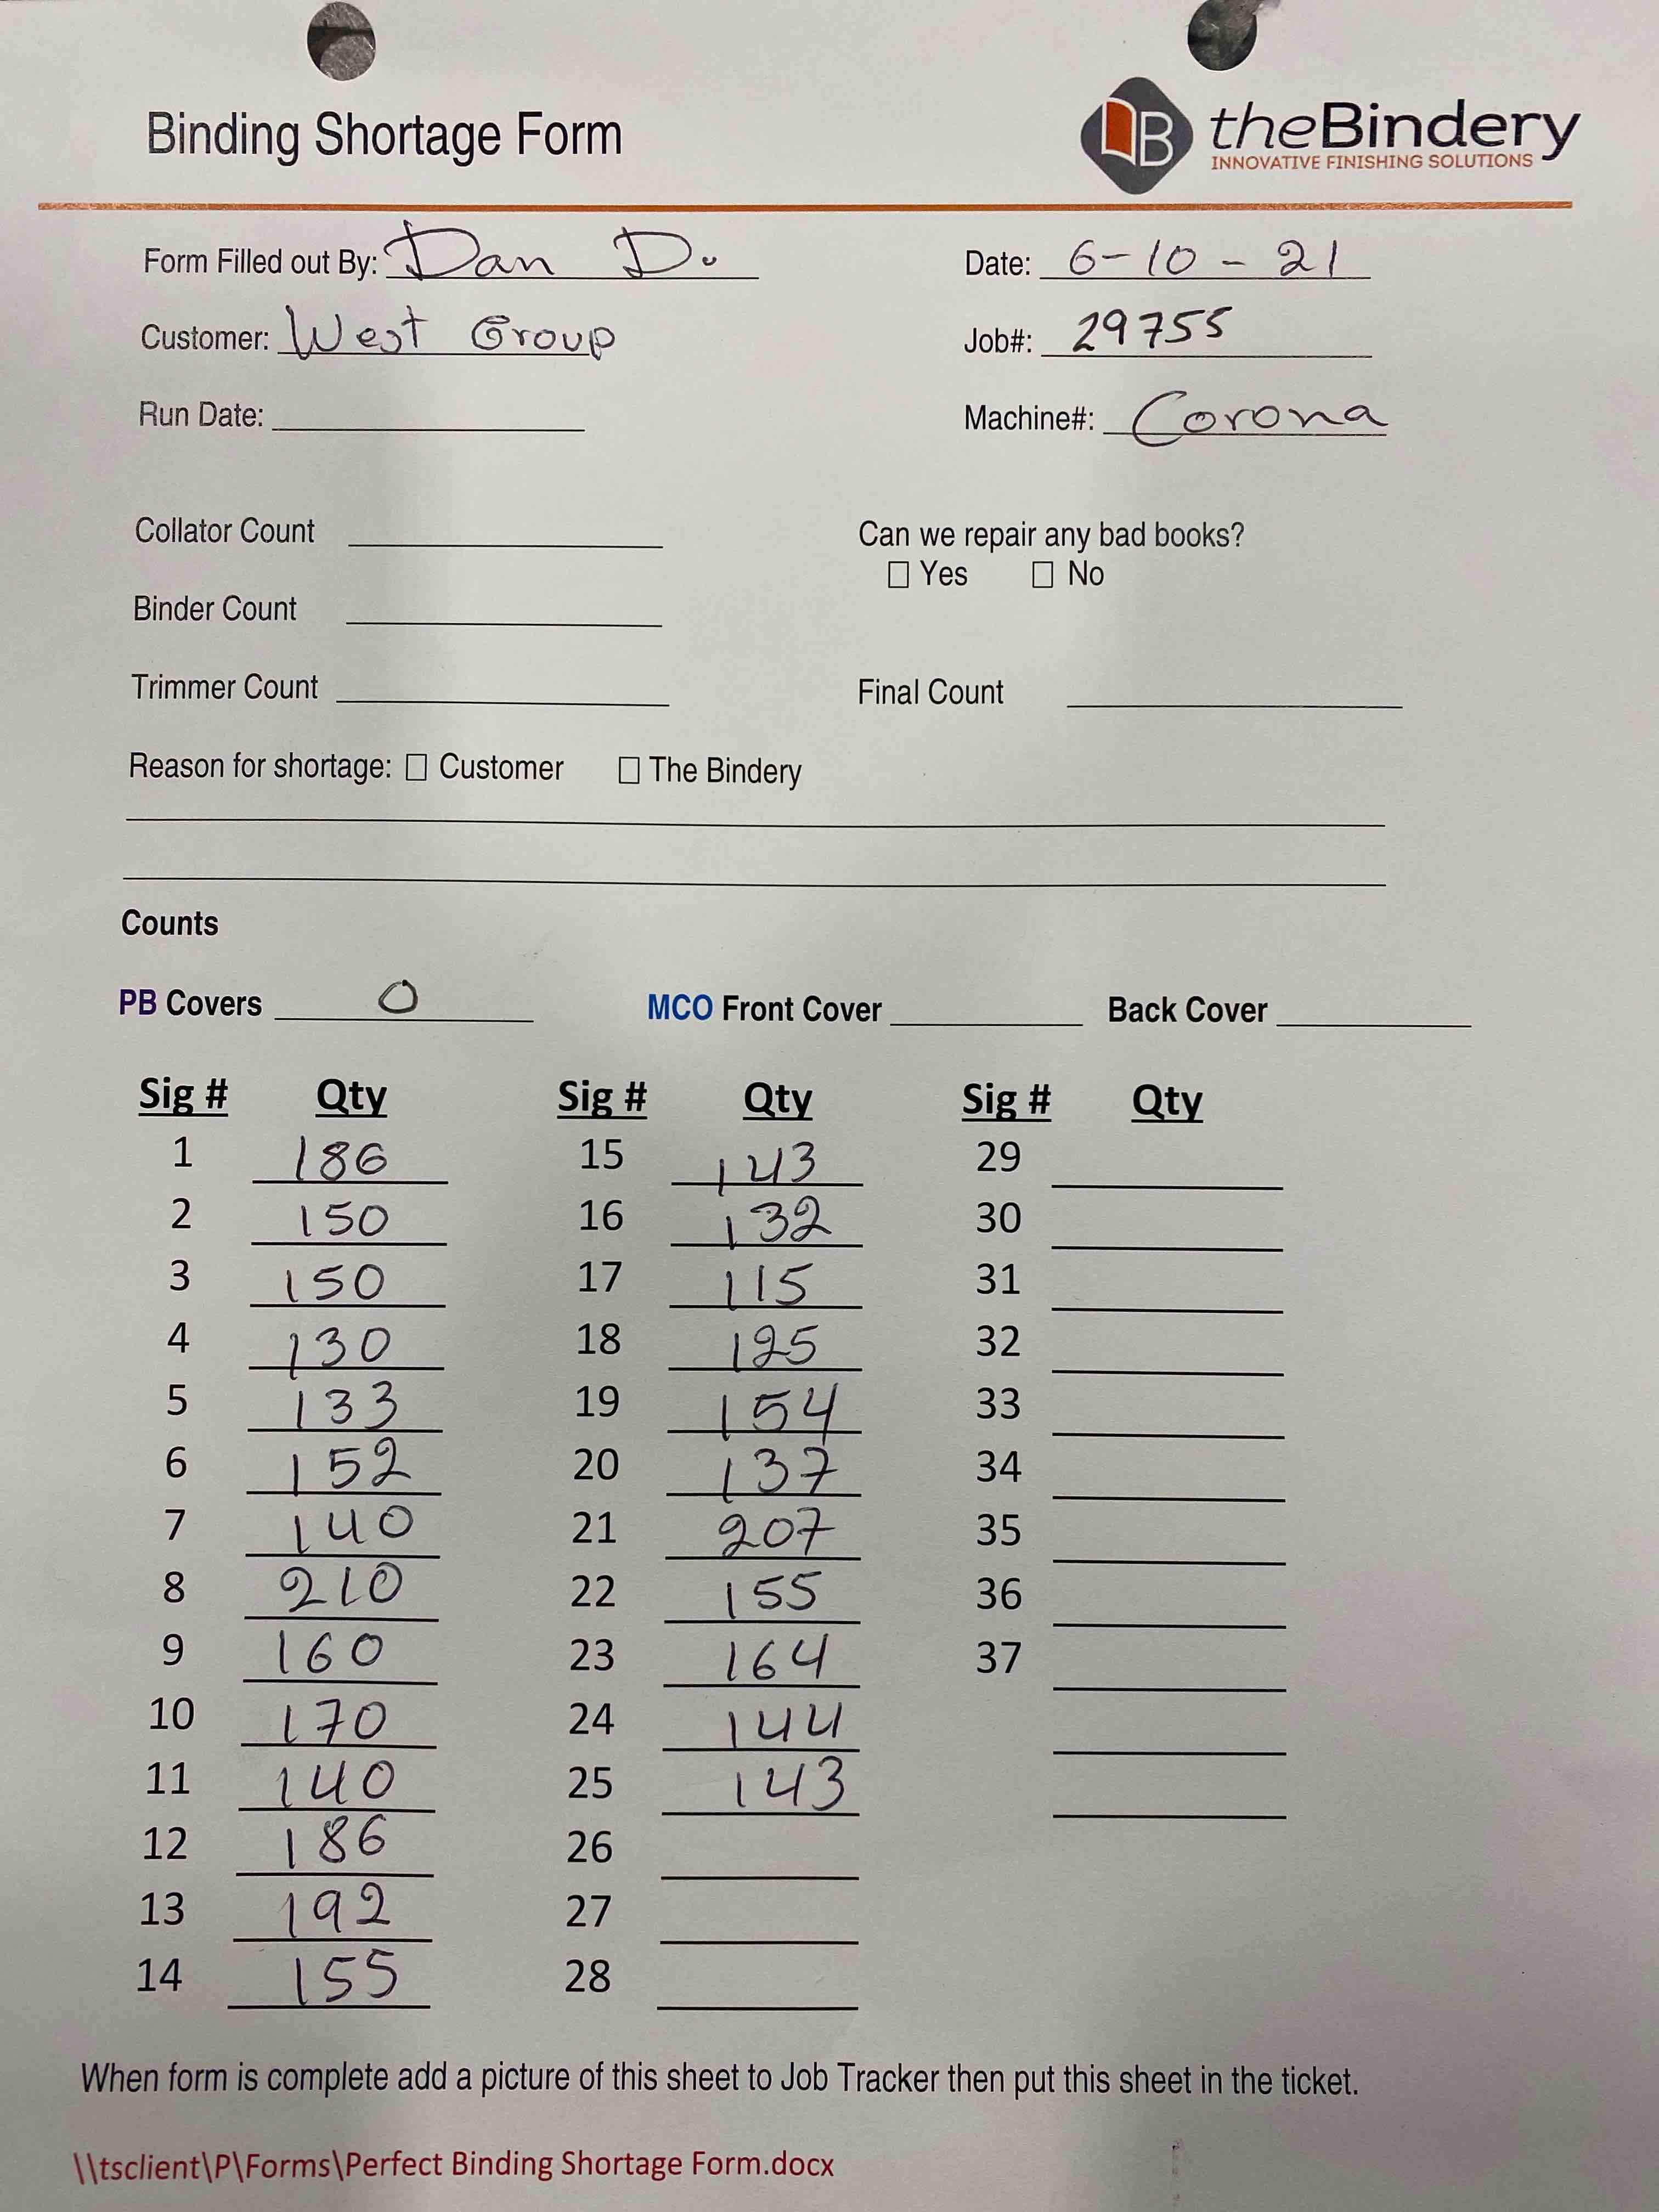 Binding Shortage Form
B theBindery
INNOVATIVE FINISHING SOLUTIONS
Form Filled out By: Dan D. Date: 6-10-21
Customer: West Group Job#: 29755
Run Date: Machine#: Corona
Collator Count Can we repair any bad books?
☐ Yes ☐ No
Binder Count
Trimmer Count Final Count
Reason for shortage: ☐ Customer ☐ The Bindery
Counts
PB Covers 0 MCO Front Cover Back Cover
Sig # Qty Sig # Qty Sig # Qty
1 186 15 143 29
2 150 16 132 30
3 150 17 115 31
4 130 18 125 32
5 133 19 154 33
6 152 20 137 34
7 140 21 207 35
8 210 22 155 36
9 160 23 164 37
10 170 24 144
11 140 25 143
12 186 26
13 192 27
14 155 28
When form is complete add a picture of this sheet to Job Tracker then put this sheet in the ticket.
\\tsclient\P\Forms\Perfect Binding Shortage Form.docx